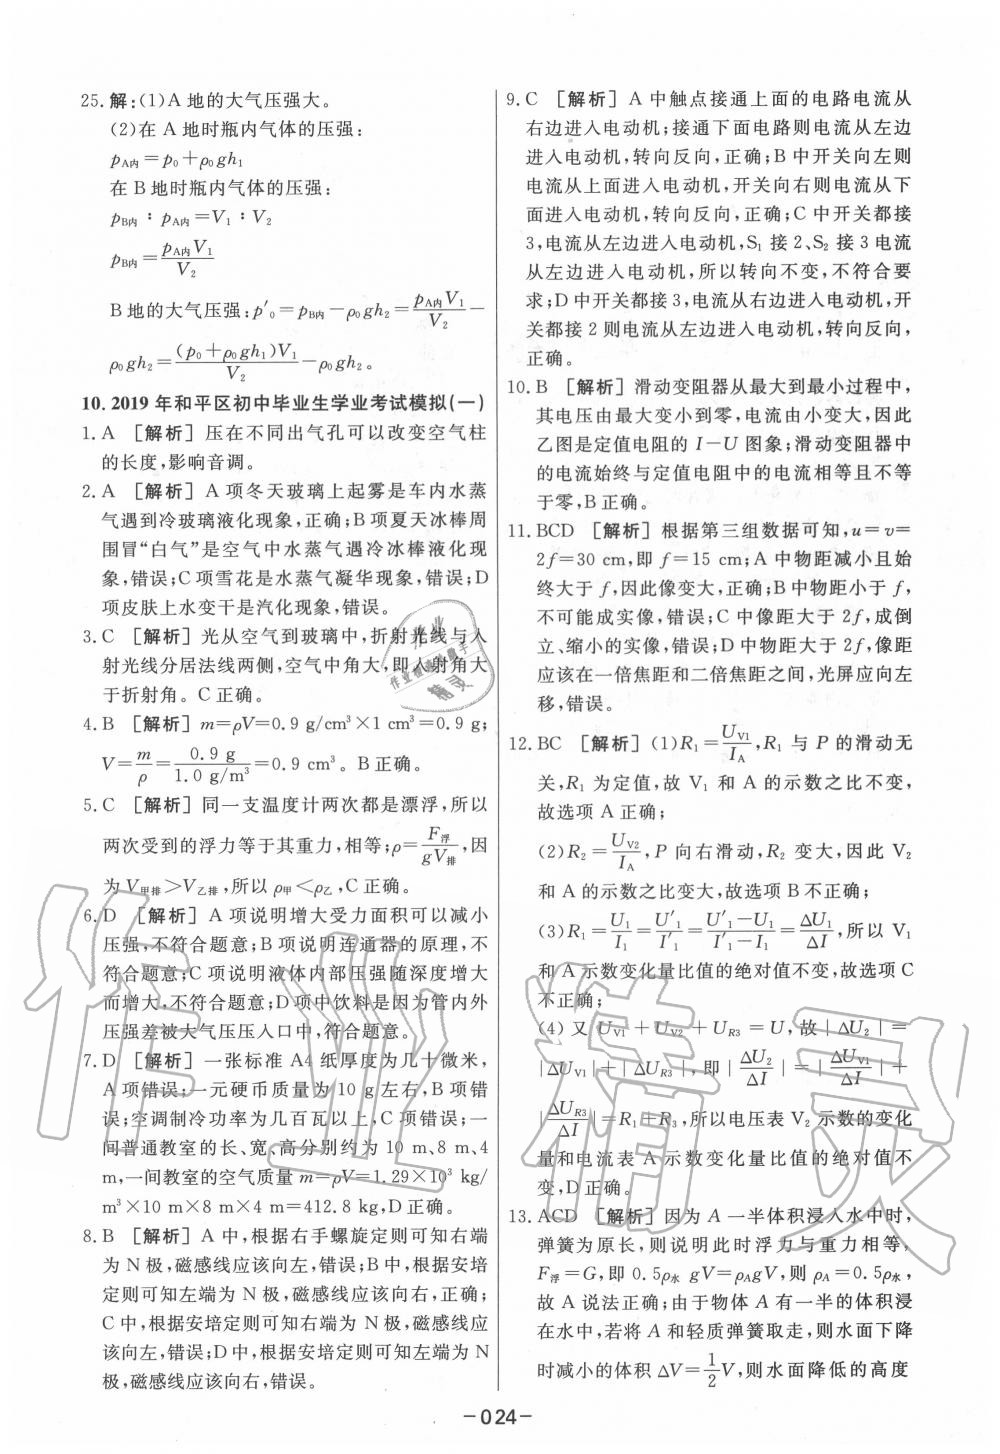 25. 解:(1)A 地的大气压强大。
(2)在 A 地时瓶内气体的压强:
p_A内=p₀+ρ₀gh₁
在 B 地时瓶内气体的压强:
p_B内∶p_A内=V₁∶V₂
p_B内=p_A内V₁/V₂
B 地的大气压强:p′₀=p_B内-ρ₀gh₂=p_A内V₁/V₂-
ρ₀gh₂=(p₀+ρ₀gh₁)V₁/V₂-ρ₀gh₂。
10. 2019 年和平区初中毕业生学业考试模拟(一)
1. A [解析] 压在不同出气孔可以改变空气柱
的长度,影响音调。
2. A [解析] A 项冬天玻璃上起雾是车内水蒸
气遇到冷玻璃液化现象,正确;B 项夏天冰棒周
围冒“白气”是空气中水蒸气遇冷冰棒液化现
象,错误;C 项雪花是水蒸气凝华现象,错误;D
项皮肤上水变干是汽化现象,错误。
3. C [解析] 光从空气到玻璃中,折射光线与入
射光线分居法线两侧,空气中角大,即入射角大
于折射角。C 正确。
4. B [解析] m=ρV=0.9 g/cm³×1 cm³=0.9 g;
V=m/ρ=0.9 g/1.0 g/m³=0.9 cm³。B 正确。
5. C [解析] 同一支温度计两次都是漂浮,所以
两次受到的浮力等于其重力,相等;ρ=F浮/gV排,因
为 V甲排>V乙排,所以 ρ甲<ρ乙,C 正确。
6. D [解析] A 项说明增大受力面积可以减小
压强,不符合题意;B 项说明连通器的原理,不
符合题意;C 项说明液体内部压强随深度增大
而增大,不符合题意;D 项中饮料是因为管内外
压强差被大气压压入口中,符合题意。
7. D [解析] 一张标准 A4 纸厚度为几十微米,
A 项错误;一元硬币质量为 10 g 左右,B 项错
误;空调制冷功率为几百瓦以上,C 项错误;一
间普通教室的长、宽、高分别约为 10 m、8 m、4
m,一间教室的空气质量 m=ρV=1.29×10³ kg/
m³×10 m×8 m×4 m=412.8 kg,D 正确。
8. B [解析] A 中,根据右手螺旋定则可知右端
为 N 极,磁感线应该向左,错误;B 中,根据安培
定则可知左端为 N 极,磁感线应该向右,正确;
C 中,根据安培定则可知右端为 N 极,磁感线应
该向左,错误;D 中,根据安培定则可知左端为 N
极,磁感线应该向右,错误。
9. C [解析] A 中触点接通上面的电路电流从
右边进入电动机;接通下面电路则电流从左边
进入电动机,转向反向,正确;B 中开关向左则
电流从上面进入电动机,开关向右则电流从下
面进入电动机,转向反向,正确;C 中开关都接
3,电流从左边进入电动机,S₁ 接 2、S₂ 接 3 电流
从左边进入电动机,所以转向不变,不符合要
求;D 中开关都接 3,电流从右边进入电动机,开
关都接 2 则电流从左边进入电动机,转向反向,
正确。
10. B [解析] 滑动变阻器从最大到最小过程中,
其电压由最大变小到零,电流由小变大,因此
乙图是定值电阻的 I—U 图象;滑动变阻器中
的电流始终与定值电阻中的电流相等且不等
于零,B 正确。
11. BCD [解析] 根据第三组数据可知,u=v=
2f=30 cm,即 f=15 cm;A 中物距减小且始
终大于 f,因此像变大,正确;B 中物距小于 f,
不可能成实像,错误;C 中像距大于 2f,成倒
立、缩小的实像,错误;D 中物距大于 2f,像距
应该在一倍焦距和二倍焦距之间,光屏应向左
移,错误。
12. BC [解析] (1)R₁=U_V1/I_A,R₁ 与 P 的滑动无
关,R₁ 为定值,故 V₁ 和 A 的示数之比不变,
故选项 A 正确;
(2)R₂=U_V2/I_A,P 向右滑动,R₂ 变大,因此 V₂
和 A 的示数之比变大,故选项 B 不正确;
(3)R₁=U₁/I₁=U′₁/I′₁=U′₁-U₁/I′₁-I₁=△U₁/△I,所以 V₁
和 A 示数变化量比值的绝对值不变,故选项 C
不正确;
(4) 又 U_V1+U_V2+U_R3=U,故|△U₂|=
|△U_V1|+|△U_R3|,即|△U₂/△I|=|△U_V1/△I|+
|△U_R3/△I|=R₁+R₃,所以电压表 V₂ 示数的变化
量和电流表 A 示数变化量比值的绝对值不
变,D 正确。
13. ACD [解析] 因为 A 一半体积浸入水中时,
弹簧为原长,则说明此时浮力与重力相等,
F浮=G,即 0.5ρ水 gV=ρ_AgV,则 ρ_A=0.5ρ水,
故 A 说法正确;由于物体 A 有一半的体积浸
在水中,若将 A 和轻质弹簧取走,则水面下降
时减小的体积 △V=1/2V,则水面降低的高度
-024-
作业精灵